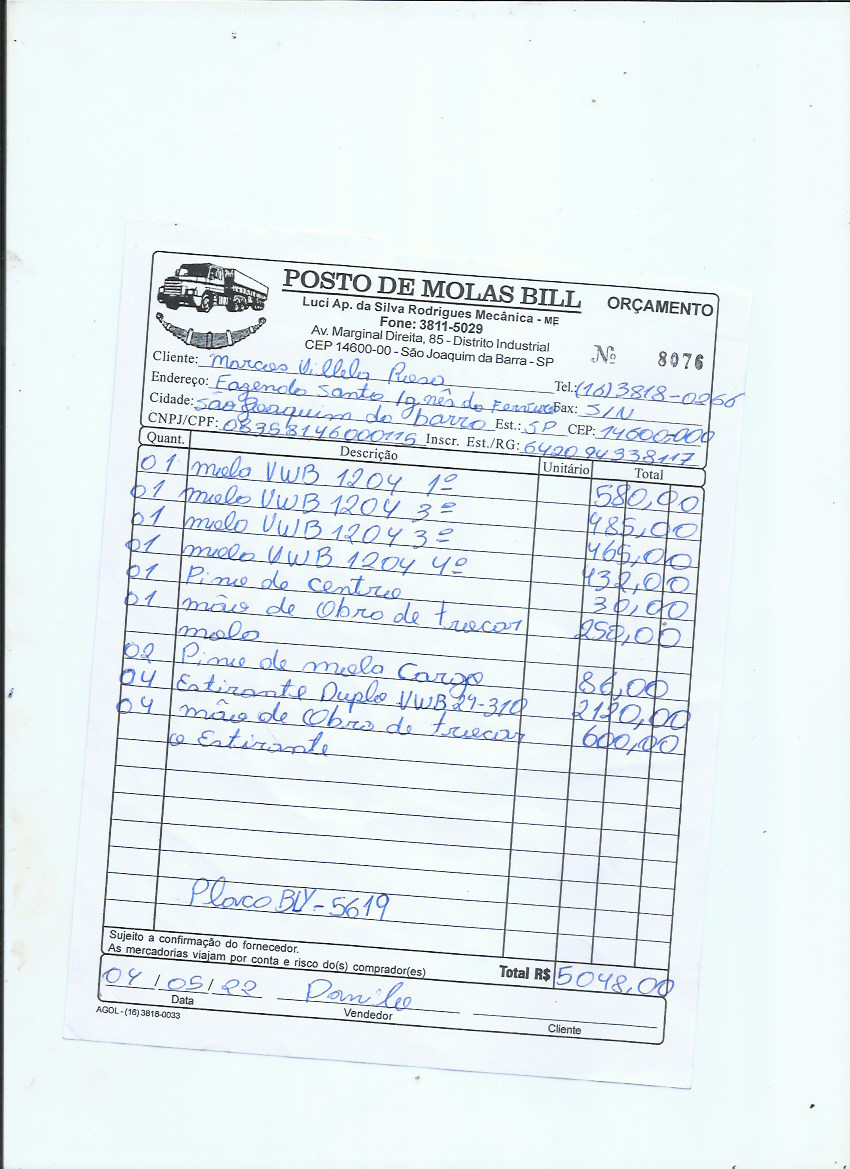 POSTO DE MOLAS BILL
ORÇAMENTO
Luci Ap. da Silva Rodrigues Mecânica - ME
Fone: 3811-5029
Av. Marginal Direita, 85 - Distrito Industrial
CEP 14600-00 - São Joaquim da Barra - SP
Nº 8076
Cliente: Marcos Villela Rosa Tel.: (16) 3818-0266
Endereço: Fazenda Santa Ignês do Fax: S/N
Cidade: São Joaquim da barra Est.: SP CEP: 14600-000
CNPJ/CPF: 08358146000115 Inscr. Est./RG: 642094338117
Quant. Descrição Unitário Total
01 mola VWB 1204 1º 580,00
01 mola VWB 1204 3º 485,00
01 mola VWB 1204 3º 465,00
01 mola VWB 1204 4º 432,00
01 Pino de centro 30,00
01 mão de Obra de trocar 250,00
mola
02 Pino de mola Cargo 86,00
04 Estirante Duplo VWB 24-310 2120,00
04 mão de Obra de trocar 600,00
o Estirante
Placa BLY-5619
Sujeito a confirmação do fornecedor.
As mercadorias viajam por conta e risco do(s) comprador(es)
Total R$ 5048,00
04/05/22 Danilo
Data Vendedor Cliente
AGOL - (16) 3818-0033